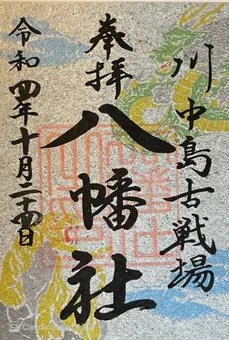 川中島古戦場
奉拝
八幡社
令和四年十月二十四日
CamScanner